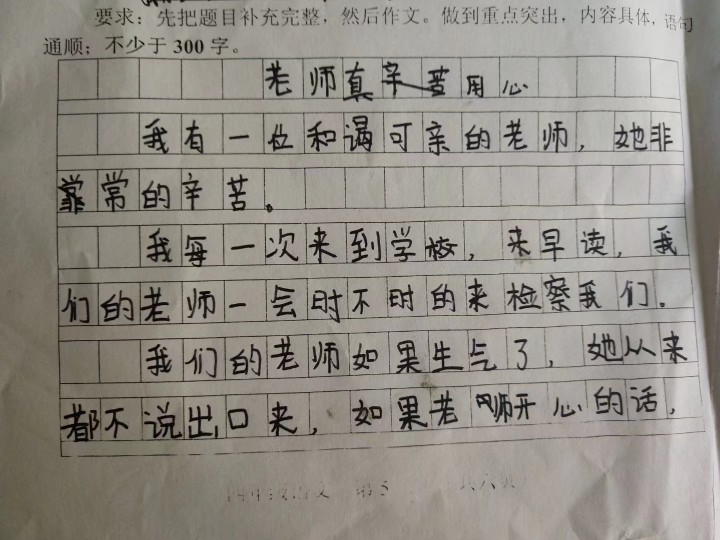 要求：先把题目补充完整，然后作文。做到重点突出，内容具体，语句
通顺；不少于300字。
老师真辛苦用心
我有一位和谒可亲的老师，她非
常的辛苦。
我每一次来到学校，来早读，我
们的老师一会时不时的来检察我们。
我们的老师如果生气了，她从来
都不说出口来，如果老师开心的话，